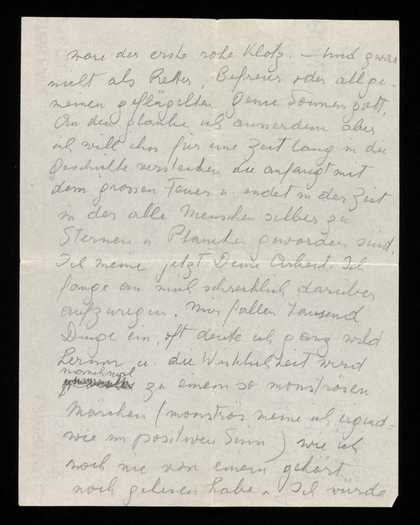 wäre der erste rohe Klotz. – Und zwar
nicht als Retter, Befreier oder allge-
meinen geflügelten Sonnengott.
An den glaube ich ausserdem aber
ich will ihn für eine Zeit lang in die
Geschichte verstecken die anfängt mit
dem grossen Feuer u. endet in der Zeit
in der alle Menschen selber zu
Sternen u Planeten geworden sind.
Ich meine jetzt Deine Arbeit. Ich
fange an mich schrecklich darüber
aufzuregen. Mir fallen tausend
Dinge ein, oft denke ich ganz wild
herum u. die Wirklichkeit wird
manchmal
zu einem so monströsen
Märchen (monströs meine ich irgend-
wie im positiven Sinn) wie ich
noch nie von einem gehört
noch gelesen habe. Ich würde